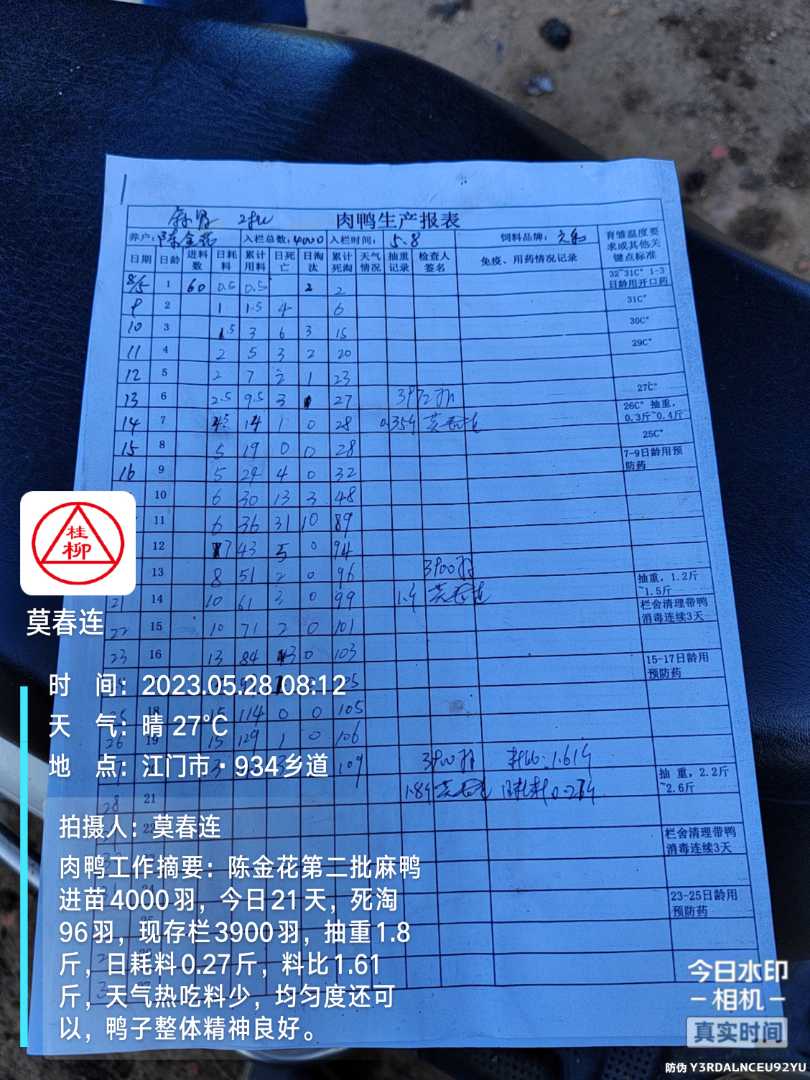 肉鸭生产报表
养户: 陈金花 入栏总数: 4000 入栏时间: 5.8 饲料品牌:
育雏温度要求或其他关键点标准
日期 日龄 进料数 日耗料 累计用料 日死亡 日淘汰 累计死淘 天气情况 抽重记录 检查人签名 免疫、用药情况记录
8/5 1 60 0.5 0.5 2 2 32~31C° 1-3日龄用开口药
9 2 1 1.5 4 6 31C°
10 3 1.5 3 6 3 15 30C°
11 4 2 5 3 2 20 29C°
12 5 2 7 2 1 23
13 6 2.5 9.5 3 27 3972羽 27℃
14 7 14 1 0 28 0.35斤 莫春连 26C° 抽重,0.3斤~0.4斤
15 8 5 19 0 0 28 25C°
16 9 5 24 4 0 32 7-9日龄用预防药
10 6 30 13 3 48
11 6 36 31 10 89
12 7 43 5 0 94
13 8 51 2 0 96 3900羽
21 14 10 61 3 0 99 1.斤 莫春连 抽重,1.2斤~1.5斤
22 15 10 71 2 0 101 栏舍清理带鸭消毒连续3天
23 16 13 84 3 0 103 15-17日龄用预防药
25 18 15 114 0 0 105
26 19 15 129 1 0 106
109 3900羽 料比:1.61斤
28 21 1.8斤 莫春连 日耗料0.27斤 抽重,2.2斤~2.6斤
22 栏舍清理带鸭消毒连续3天
24 23-25日龄用预防药
桂柳
莫春连
时 间：2023.05.28 08:12
天 气：晴 27℃
地 点：江门市·934乡道
拍摄人：莫春连
肉鸭工作摘要：陈金花第二批麻鸭
进苗4000羽，今日21天，死淘
96羽，现存栏3900羽，抽重1.8
斤，日耗料0.27斤，料比1.61
斤，天气热吃料少，均匀度还可
以，鸭子整体精神良好。
今日水印
-相机-
真实时间
防伪 Y3RDALNCEU92YU